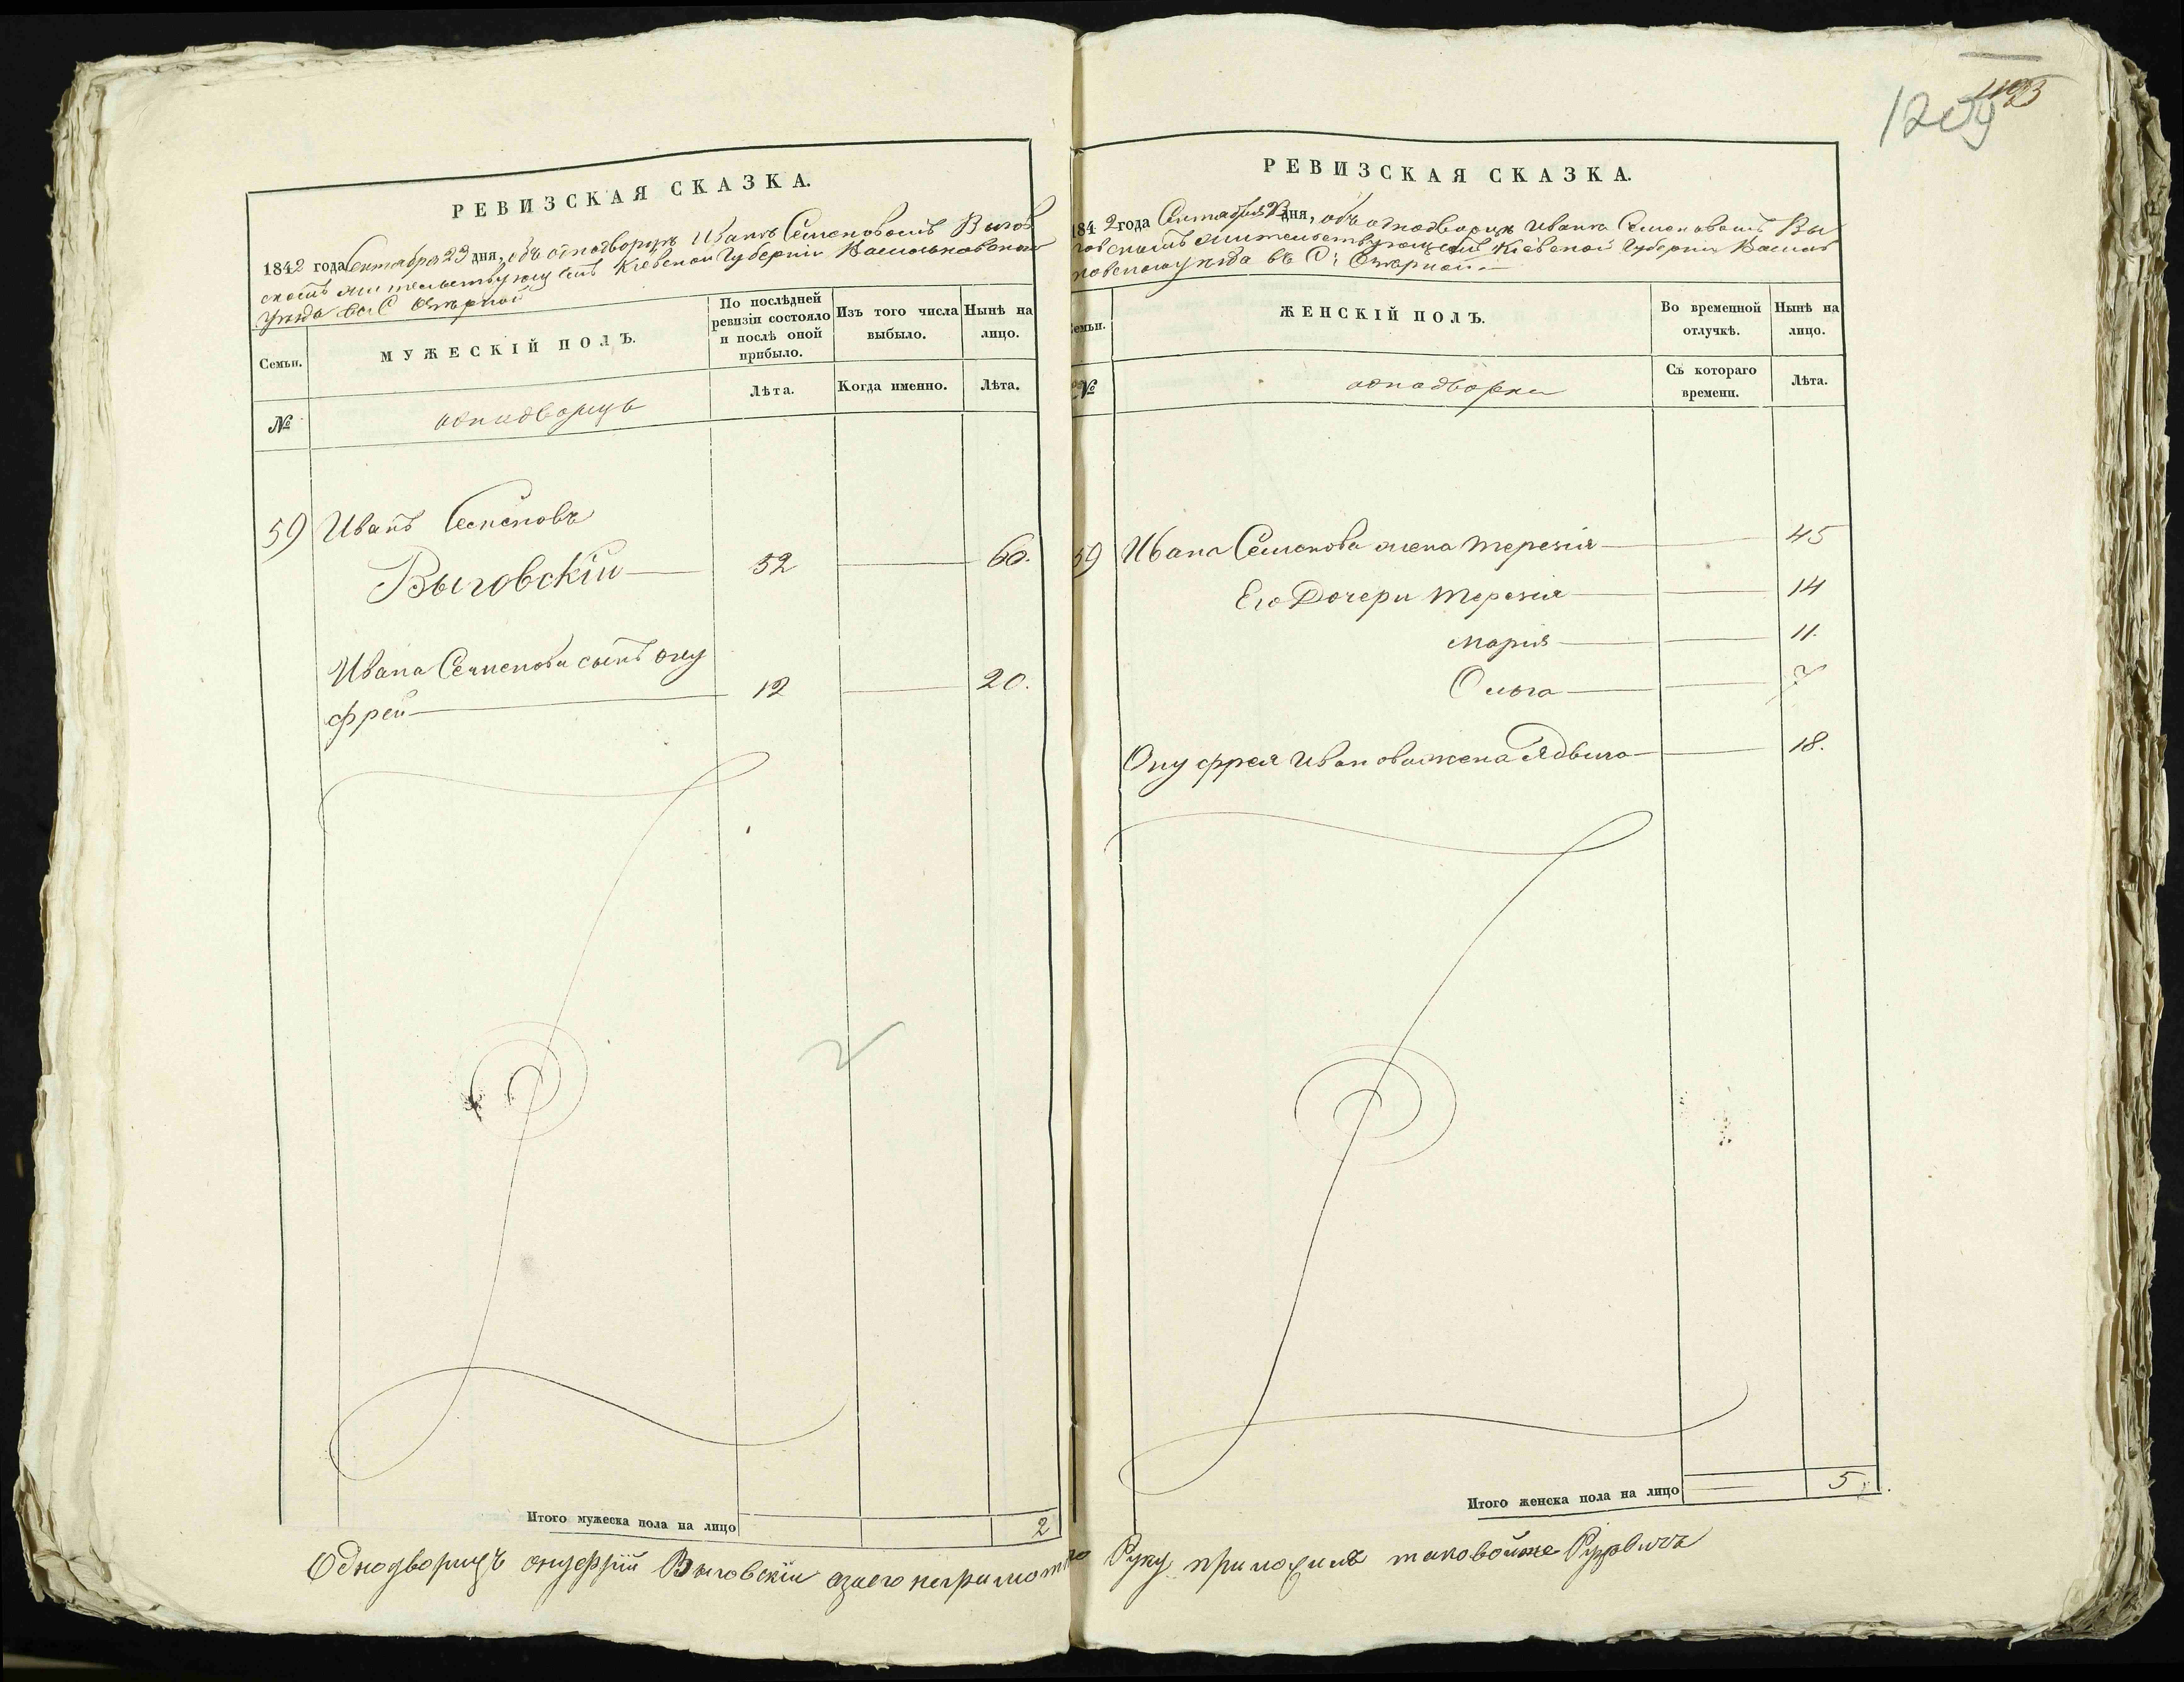 РЕВИЗСКАЯ СКАЗКА.
1842 года Сентября 23 дня, объ однодворцѣ Иванѣ Семеновомъ Выгов
скомъ жительствующемъ Кіевской Губерніи Васильковскаго
уѣзда въ С. Озѣрной
Семьи.
МУЖЕСКІЙ ПОЛЪ.
По послѣдней ревизіи состояло и послѣ оной прибыло.
Изъ того числа выбыло.
Нынѣ на лицо.
№
однодворцъ
Лѣта.
Когда именно.
Лѣта.
59 Иванъ Семеновъ
Выговскій 52 60.
Ивана Семенова сынъ Ону
фрей 12 20.
Итого мужеска пола на лицо 2
Однодворицъ Онуфрій Выговскій азаего неграмотнаго
1203
РЕВИЗСКАЯ СКАЗКА.
1842 года Сентября 23 дня, объ однодворцѣ Иванѣ Семеновомъ Вы
говскомъ жительствующемъ Кіевской Губерніи Василь
ковскаго уѣзда въ С. Озѣрной
Семьи.
ЖЕНСКІЙ ПОЛЪ.
Во временной отлучкѣ.
Нынѣ на лицо.
№
однодворки
Съ котораго времени.
Лѣта.
59 Ивана Семенова жена Терезія 45
Его Дочери Терезія 14
Марія 11.
Ольга 7
Онуфрея Иванова жена Ядвига 18.
Итого женска пола на лицо 5
Руку приложилъ таковой же